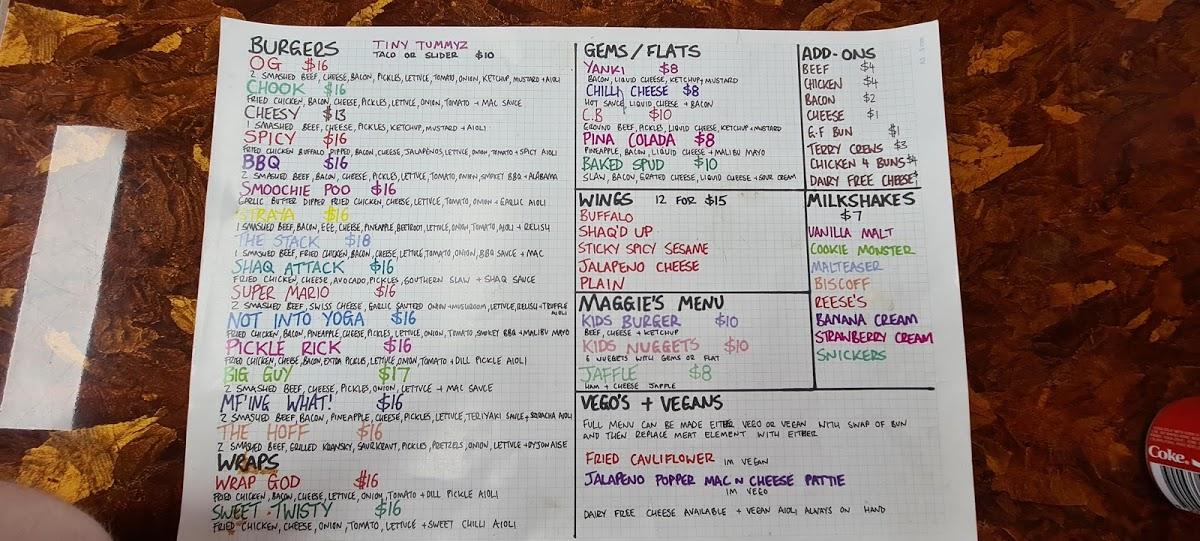 BURGERS
TINY TUMMYZ
TACO OR SLIDER $10
OG $16
2 SMASHED BEEF, CHEESE, BACON, PICKLES, LETTUCE, TOMATO, ONION, KETCHUP, MUSTARD + AIOLI
CHOOK $16
FRIED CHICKEN, BACON, CHEESE, PICKLES, LETTUCE, ONION, TOMATO + MAC SAUCE
CHEESY $13
1 SMASHED BEEF, CHEESE, PICKLES, KETCHUP, MUSTARD + AIOLI
SPICY $16
FRIED CHICKEN BUFFALO DIPPED, BACON, CHEESE, JALAPENOS, LETTUCE, ONION, TOMATO + SPICY AIOLI
BBQ $16
2 SMASHED BEEF, BACON, CHEESE, PICKLES, LETTUCE, TOMATO, ONION, SMOKEY BBQ + ALABAMA
SMOOCHIE POO $16
GARLIC BUTTER DIPPED FRIED CHICKEN, CHEESE, LETTUCE, TOMATO, ONION + GARLIC AIOLI
STRAYA $16
1 SMASHED BEEF, BACON, EGG, CHEESE, PINEAPPLE, BEETROOT, LETTUCE, ONION, TOMATO, AIOLI + RELISH
THE STACK $18
1 SMASHED BEEF, FRIED CHICKEN, BACON, CHEESE, LETTUCE, TOMATO, ONION, BBQ SAUCE + MAC
SHAQ ATTACK $16
FRIED CHICKEN, CHEESE, AVOCADO, PICKLES, SOUTHERN SLAW + SHAQ SAUCE
SUPER MARIO $16
2 SMASHED BEEF, SWISS CHEESE, GARLIC SAUTEED ONION + MUSHROOM, LETTUCE, RELISH + TRUFFLE AIOLI
NOT INTO YOGA $16
FRIED CHICKEN, BACON, PINEAPPLE, CHEESE, PICKLES, LETTUCE, ONION, TOMATO, SMOKEY BBQ + MALIBU MAYO
PICKLE RICK $16
FRIED CHICKEN, CHEESE, BACON, EXTRA PICKLES, LETTUCE, ONION, TOMATO + DILL PICKLE AIOLI
BIG GUY $17
2 SMASHED BEEF, CHEESE, PICKLES, ONION, LETTUCE + MAC SAUCE
MF'ING WHAT! $16
2 SMASHED BEEF, BACON, PINEAPPLE, CHEESE, PICKLES, LETTUCE, TERIYAKI SAUCE + SRIRACHA AIOLI
THE HOFF $16
2 SMASHED BEEF, GRILLED KRANSKY, SAURKRAUT, PICKLES, PRETZELS, ONION, LETTUCE + DIJONAISE
WRAPS
WRAP GOD $16
FRIED CHICKEN, BACON, CHEESE, LETTUCE, ONION, TOMATO + DILL PICKLE AIOLI
SWEET TWISTY $16
FRIED CHICKEN, CHEESE, ONION, TOMATO, LETTUCE + SWEET CHILLI AIOLI
GEMS / FLATS
YANKI $8
BACON, LIQUID CHEESE, KETCHUP + MUSTARD
CHILLI CHEESE $8
HOT SAUCE, LIQUID CHEESE + BACON
C.B $10
GROUND BEEF, PICKLES, LIQUID CHEESE, KETCHUP + MUSTARD
PINA COLADA $8
PINEAPPLE, BACON, LIQUID CHEESE + MALIBU MAYO
BAKED SPUD $10
SLAW, BACON, GRATED CHEESE, LIQUID CHEESE + SOUR CREAM
WINGS 12 FOR $15
BUFFALO
SHAQ'D UP
STICKY SPICY SESAME
JALAPENO CHEESE
PLAIN
MAGGIE'S MENU
KIDS BURGER $10
BEEF, CHEESE + KETCHUP
KIDS NUGGETS $10
6 NUGGETS WITH GEMS OR FLAT
JAFFLE $8
HAM + CHEESE JAFFLE
ADD-ONS
BEEF $4
CHICKEN $4
BACON $2
CHEESE $1
G.F BUN $1
TERRY CREWS $3
CHICKEN 4 BUNS $4
DAIRY FREE CHEESE
MILKSHAKES
$7
VANILLA MALT
COOKIE MONSTER
MALTEASER
BISCOFF
REESE'S
BANANA CREAM
STRAWBERRY CREAM
SNICKERS
VEGO'S + VEGANS
FULL MENU CAN BE MADE EITHER VEGO OR VEGAN WITH SWAP OF BUN
AND THEN REPLACE MEAT ELEMENT WITH EITHER
FRIED CAULIFLOWER IM VEGAN
JALAPENO POPPER MAC N CHEESE PATTIE
IM VEGO
DAIRY FREE CHEESE AVAILABLE + VEGAN AIOLI ALWAYS ON HAND
Coke.